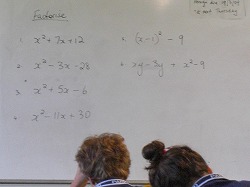 Factorise
1. x² + 7x + 12
2. x² - 3x - 28
3. x² + 5x - 6
4. x² - 11x + 30
(x - 1)² - 9
xy - 3y + x² - 9